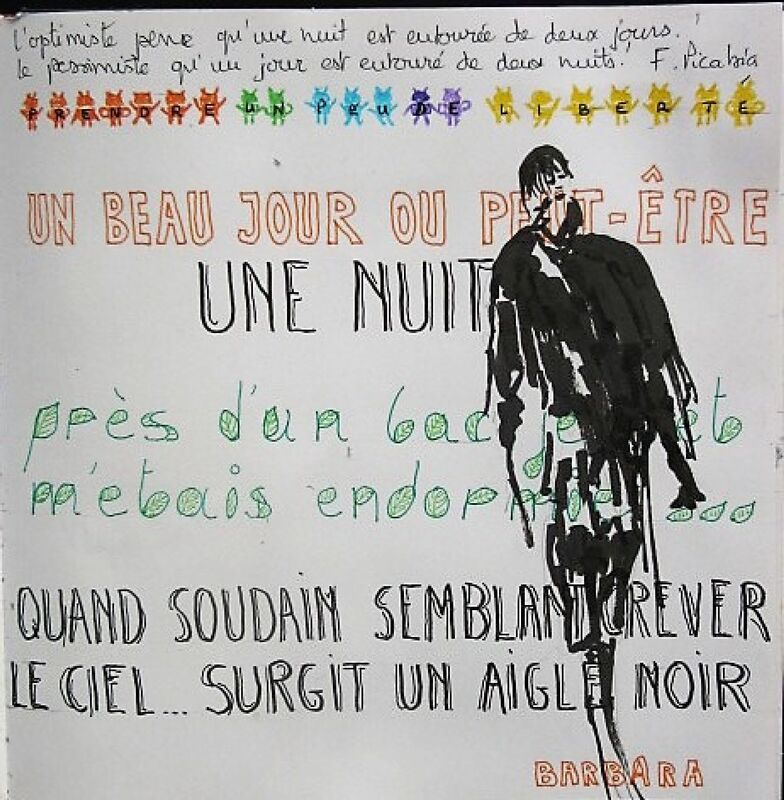 l'optimiste pense qu'une nuit est entourée de deux jours.
le pessimiste qu'un jour est entouré de deux nuits! F. Picabia
PRENDRE UN PEU DE LIBERTÉ
UN BEAU JOUR OU PEUT-ÊTRE
UNE NUIT
près d'un lac
m'etais endormie ...
QUAND SOUDAIN SEMBLANT CREVER
LE CIEL... SURGIT UN AIGLE NOIR
BARBARA